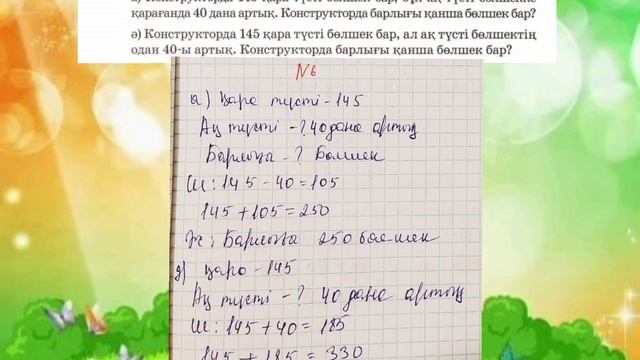 қарағанда 40 дана артық. Конструкторда барлығы қанша бөлшек бар?
ә) Конструкторда 145 қара түсті бөлшек бар, ал ақ түсті бөлшектің
одан 40-ы артық. Конструкторда барлығы қанша бөлшек бар?
№6
а) Қара түсті - 145
Ақ түсті - ? 40 дана артық
Барлығы - ? Бөлшек
Ш: 145 - 40 = 105
145 + 105 = 250
Ж: Барлығы 250 бөлшек
ә) қара - 145
Ақ түсті - ? 40 дана артық
Ш: 145 + 40 = 185
145 + 185 = 330